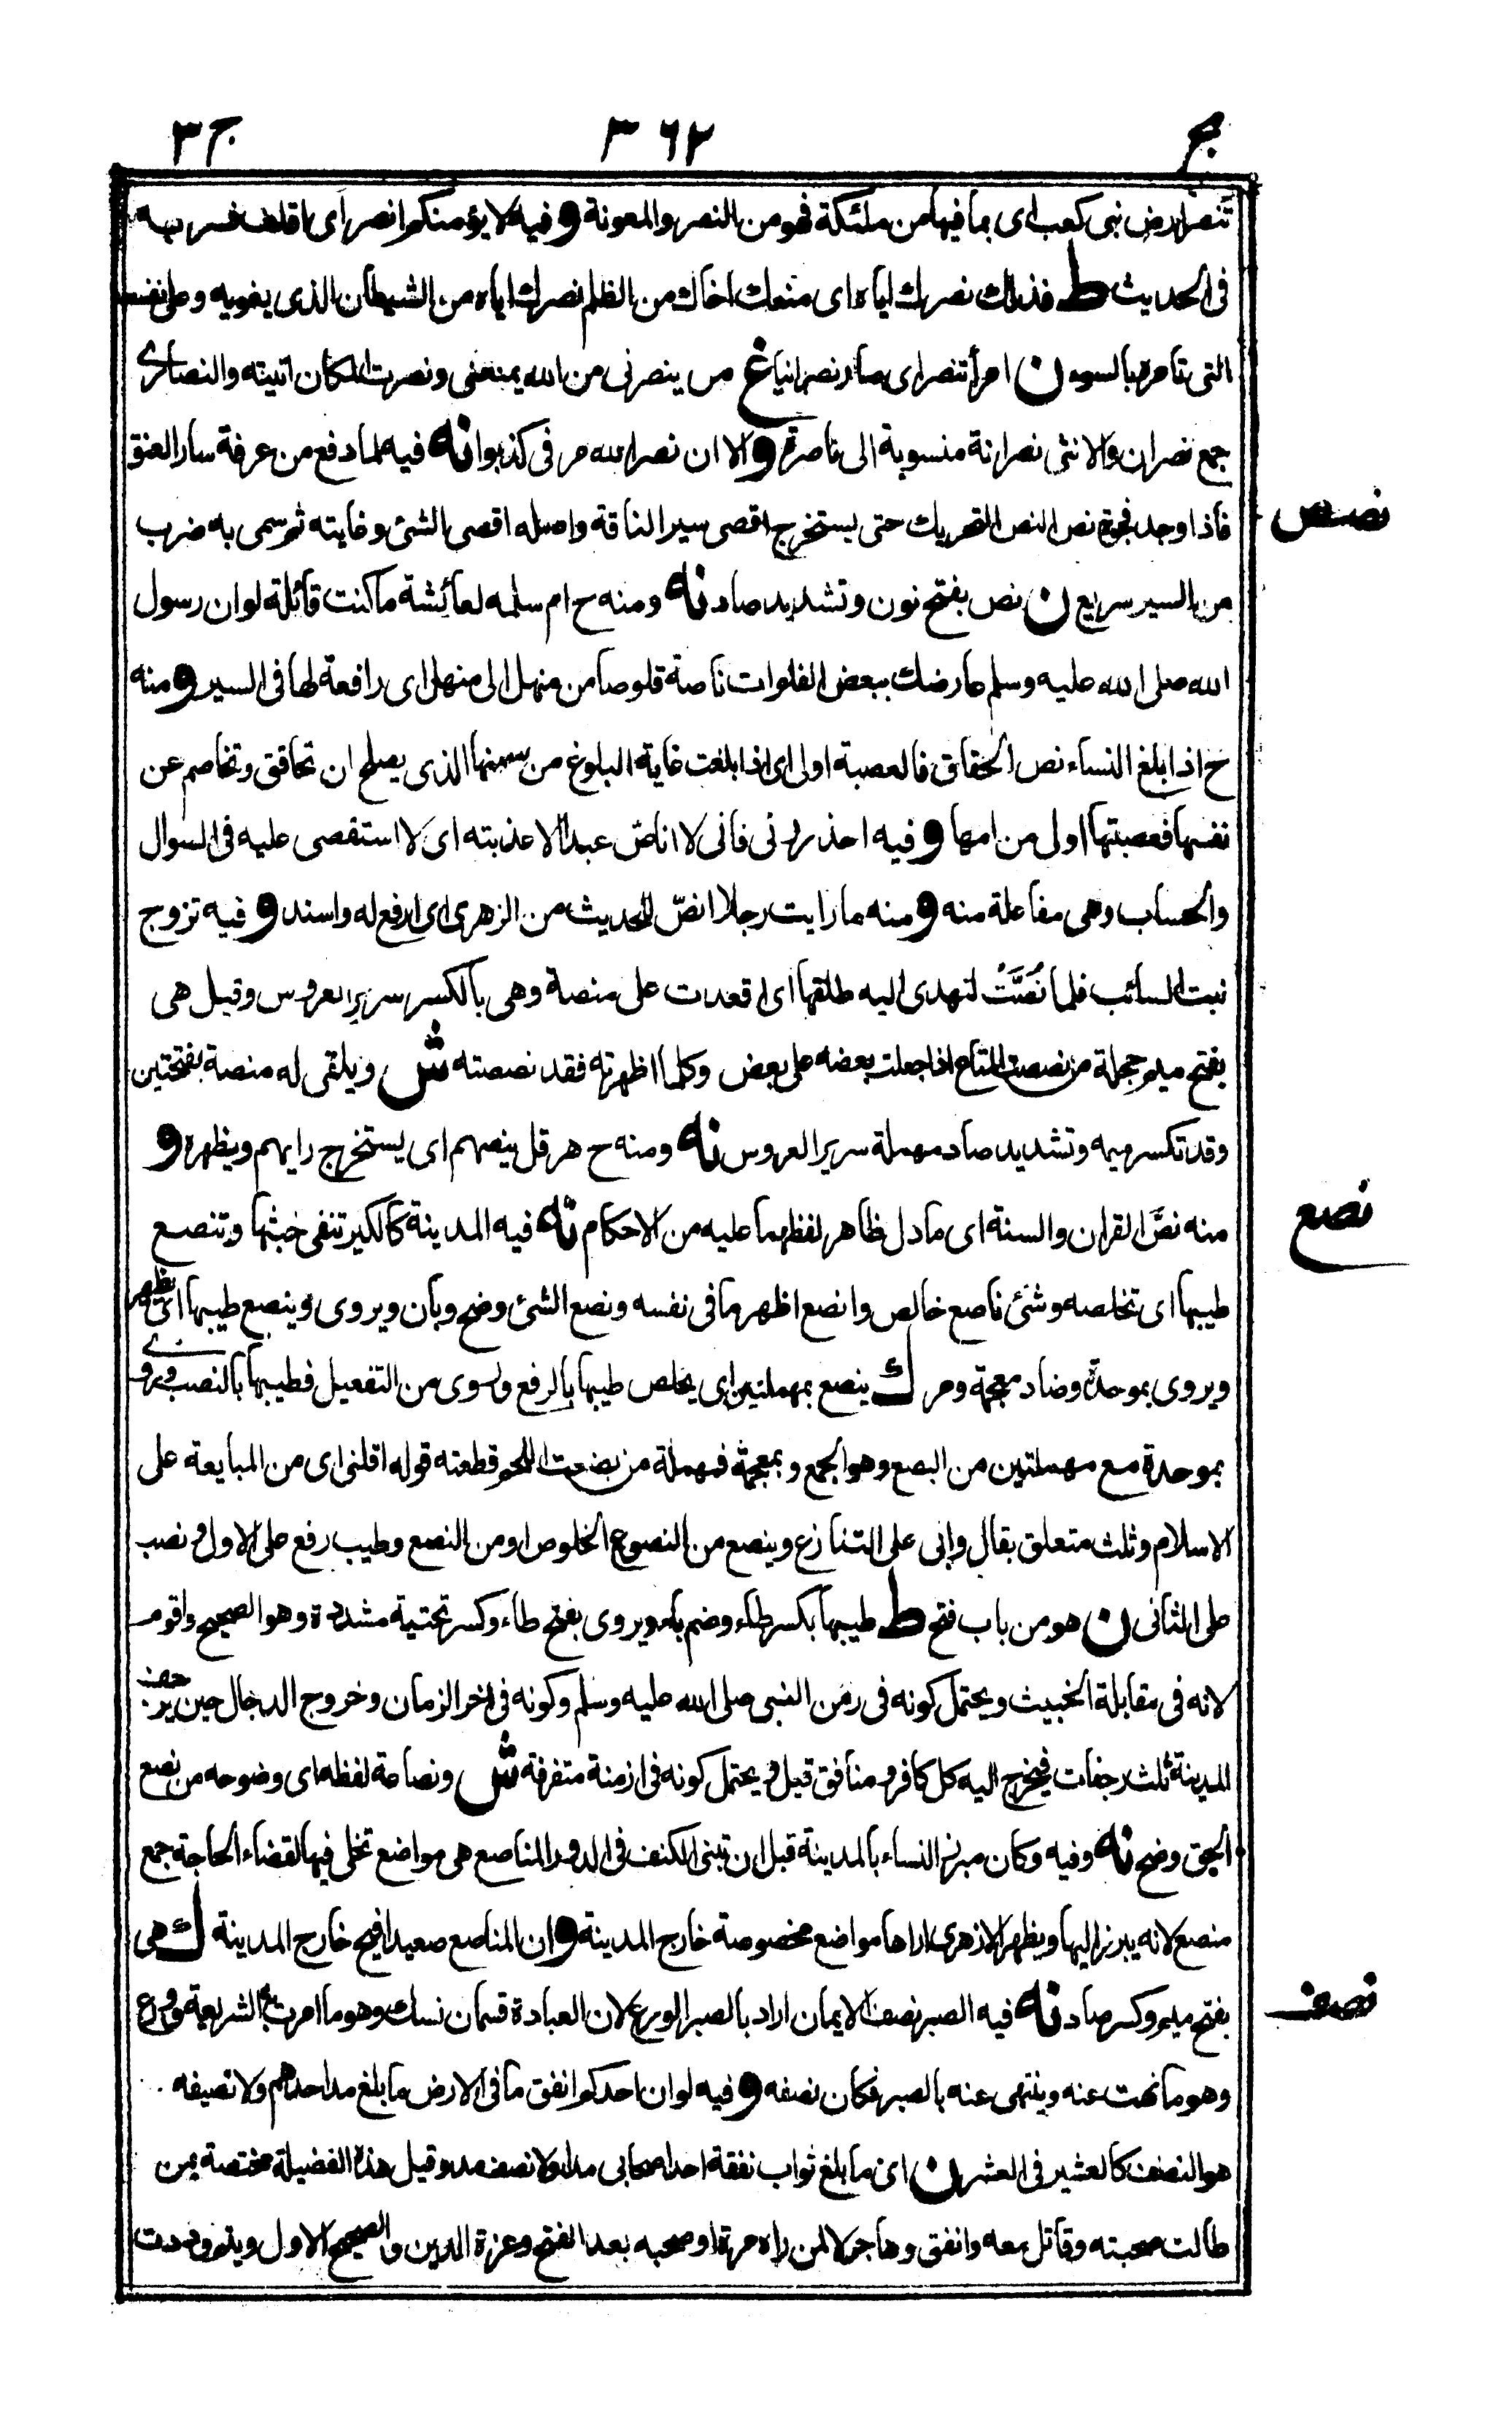 مج ٣٦٢ ج٣
تنصر ارض بنى كعب اى بما فيها من ملئكة فهو من النصر والمعونة و فيه لا يؤمنكم انصر اى اقلف فسر به
فى الحديث ط فذلك نصرك اياه اى منعك اخاك من الظلم نصرك اياه من الشيطان الذى يغويه وعلى نفسه
التى تامره بالسوء ن امرأ تنصر اى صار نصرانيا غ من ينصرنى من الله يمنعنى ونصرت المكان اتيته والنصارى
جمع نصران والانثى نصرانة منسوبة الى ناصرة و الا ان نصر الله مر فى كذبوا نه فيه لما دفع من عرفة سار العنق
نصص
فاذا وجد فجوة نص النص التحريك حتى يستخرج اقصى سير الناقة واصله اقصى الشئ وغايته ثم سمى به ضرب
من السير سريع ن نص بفتح نون وتشديد صاد نه ومنه ح ام سلمه لعائشة ما كنت قائلة لو ان رسول
الله صلى الله عليه وسلم عارضك ببعض الفلوات ناصة قلوصا من منهل الى منهل اى رافعة لها فى السير و منه
ح اذا بلغ النساء نص الحقاق فالعصبة اولى اى اذا بلغت غاية البلوغ من سنها الذى يصلح ان تحاقق وتخاصم عن
نفسها فعصبتها اولى من امها و فيه احذرونى فانى لا اناصّ عبدا الا عذبته اى لا استقصى عليه فى السوال
والحساب وهى مفاعلة منه و منه ما رايت رجلا انصّ للحديث من الزهرى اى ارفع له واسند و فيه تزوج
بنت السائب فلما نُصَّتْ لتهدى اليه طلقها اى اقعدت على منصة وهى بالكسر سرير العروس وقيل هى
بفتح ميم حجلة من نصصت المتاع اذا جعلت بعضه على بعض وكلما اظهرته فقد نصصته ش ويلقى له منصة بفتحتين
وقد تكسر ميمه وتشديد صاد مهملة سرير العروس نه ومنه ح هرقل ينصهم اى يستخرج رايهم ويظهره و
نصع
منه نصّ القران والسنة اى ما دل ظاهر لفظهما عليه من الاحكام نه فيه المدينة كالكير تنفى خبثها وتنصع
طيبها اى تخلصه وشئ ناصع خالص وانصع اظهر ما فى نفسه ونصع الشئ وضح وبان ويروى وينصع طيبها اى يظهر
ويروى بموحدة وضاد معجمة ومر ك ينصع بمهملتين اى يخلص طيبها بالرفع وروى من التفعيل فطيبها بالنصب ويروى
بموحدة مع مهملتين من البصع وهو الجمع وبمعجمة فمهملة من بضعت اللحم قطعته قوله اقلنى اى من المبايعة على
الاسلام وثلث متعلق بقال وابى على التنازع وينصع من النصوع الخلوص او من النصع وطيب رفع على الاول ونصب
على الثانى ن هو من باب فتح ط طيبها بكسر طاء وضم باء ويروى بفتح طاء وكسر تحتية مشددة وهو الصحيح واقوم
لانه فى مقابلة الخبيث ويحتمل كونه فى زمن النبى صلى الله عليه وسلم وكونه فى اخر الزمان وخروج الدجال حين يرجف
المدينة ثلث رجفات فيخرج اليه كل كافر ومنافق قيل ويحتمل كونه فى ازمنة متفرقة ش ونصاعة لفظه اى وضوحه من نصع
الحق وضح نه وفيه وكان مبرز النساء بالمدينة قبل ان تبنى الكنف فى الدور المناصع هى مواضع تخلى فيها لقضاء الحاجة جمع
منصع لانه يبرز اليها ويظهر الازهرى اراها مواضع مخصوصة خارج المدينة و ان المناصع صعيد افيح خارج المدينة ك هى
نصف
بفتح ميم وكسر صاد نه فيه الصبر نصف الايمان اراد بالصبر الورع لان العبادة قسمان نسك وهو ما امرت به الشريعة وورع
وهو ما نهت عنه وينتهى عنه بالصبر فكان نصفه و فيه لو ان احدكم انفق ما فى الارض ما بلغ مد احدهم ولا نصيفه
هو النصف كالعشير فى العشر ن اى ما بلغ ثواب نفقة احد اصحابى مدا ولا نصف مد وقيل هذه الفضيلة مختصة بمن
طالت صحبته وقاتل معه وانفق وهاجر لا لمن راه مرة او صحبه بعد الفتح وعزة الدين والصحيح الاول ويتم